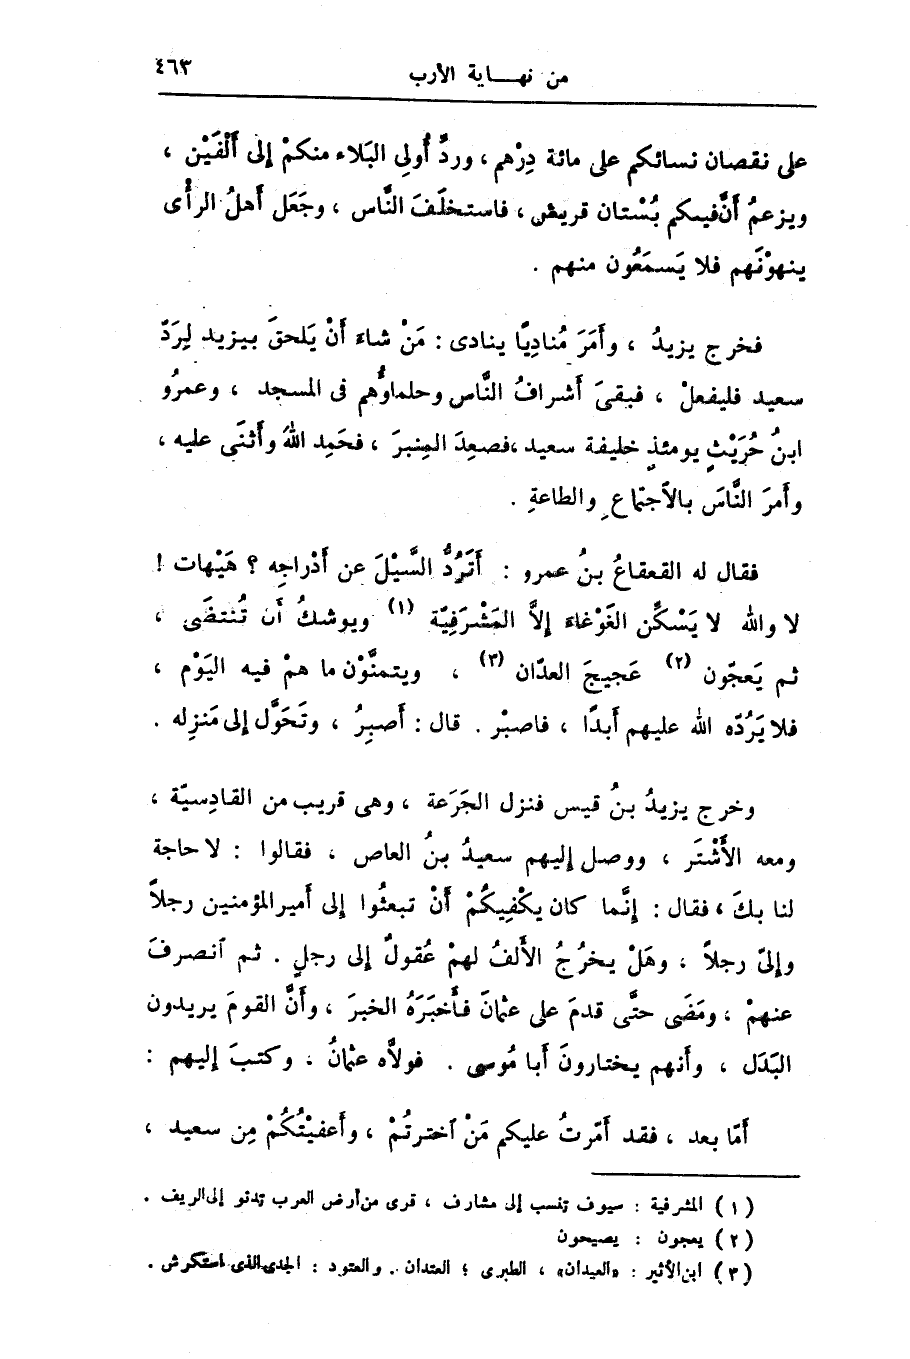 من نهــاية الأرب ٤٦٣
على نقصان نسائكم على مائة دِرْهم ، وردَّ أُولِى البَلاء منكمْ إلى أَلْفَيْن ،
ويزعمُ أَنَّ فيكم بُسْتان قريش ، فاستخلَفَ النَّاس ، وجَعَل أَهلُ الرأْى
ينهوْنَهم فلا يَسمَعُون منهم .
فخرج يزيدُ ، وأَمَرَ مُنادِيًا ينادى : مَنْ شاءَ أَنْ يَلحقَ بيزيد لِرَدّ
سعيد فليفعلْ ، فبقىَ أَشرافُ النَّاس وحلماوُهم فى المسجد ، وعمرُو
ابنُ حُرَيْثٍ يومئذٍ خليفة سعيد ، فصعِدَ المِنبرَ ، فحَمِد اللهَ وأَثنَى عليه ،
وأَمرَ النَّاسَ بالٱجتماعِ والطاعةِ .
فقال له القعقاعُ بنُ عمرو : أَتَرُدُّ السَّيْلَ عن أَدْراجِه ؟ هَيْهات !
لا والله لا يَسْكُن الغَوْغاءَ إِلاَّ المَشْرَفِيّة (١) ويوشكُ أَن تُنتضَى ،
ثم يَعجّون (٢) عَجيجَ العدّان (٣) ، ويتمنَّوْن ما همْ فيه اليَوْم ،
فلا يَرُدّه الله عليهم أَبدًا ، فاصبْر . قال : أَصبِرُ ، وتَحَوَّل إلى مَنزِله .
وخرج يزيدُ بنُ قيس فنزل الجَرَعة ، وهى قريب من القادِسيّة ،
ومعه الأَشْتَر ، ووصل إليهم سعيدُ بنُ العاص ، فقالوا : لا حاجة
لنا بكَ ، فقال : إنَّما كان يكْفِيكُمْ أَنْ تبعثُوا إلى أَمير المؤمنين رجلاً
وإلىّ رجلاً ، وهَلْ يخرُجُ الأَلفُ لهمْ عُقولٌ إلى رجلٍ . ثم ٱنصرفَ
عنهمْ ، ومَضَى حتَّى قدمَ على عثمانَ فأَخبَرَهُ الخبرَ ، وأَنَّ القومَ يريدون
البَدَل ، وأَنهم يختارونَ أَبا مُوسى . فولاَّه عثمانُ ، وكتبَ إليهم :
أَمّا بعد ، فقد أَمّرتُ عليكم مَنْ ٱخترتُمْ ، وأَعفيْتُكُمْ مِن سعيد ،
(١) المشرفية : سيوف تنسب إلى مشارف ، قرى من أرض العرب تدنو إلى الريف .
(٢) يعجون : يصيحون
(٣) ابن الأثير : «العيدان» ، الطبرى ؛ العتدان . والعتود : الجدى الذى استكرش .